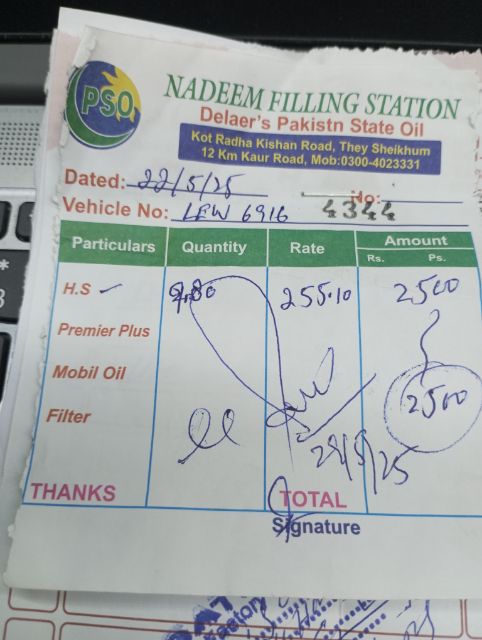 PSO
NADEEM FILLING STATION
Delaer's Pakistn State Oil
Kot Radha Kishan Road, They Sheikhum
12 Km Kaur Road, Mob:0300-4023331
Dated: 22/5/25 No: 4344
Vehicle No: LEW 6916
Particulars Quantity Rate Amount
Rs. Ps.
H.S 9.80 255.10 2500
Premier Plus
Mobil Oil
Filter 2500
28/5/25
THANKS TOTAL
Signature